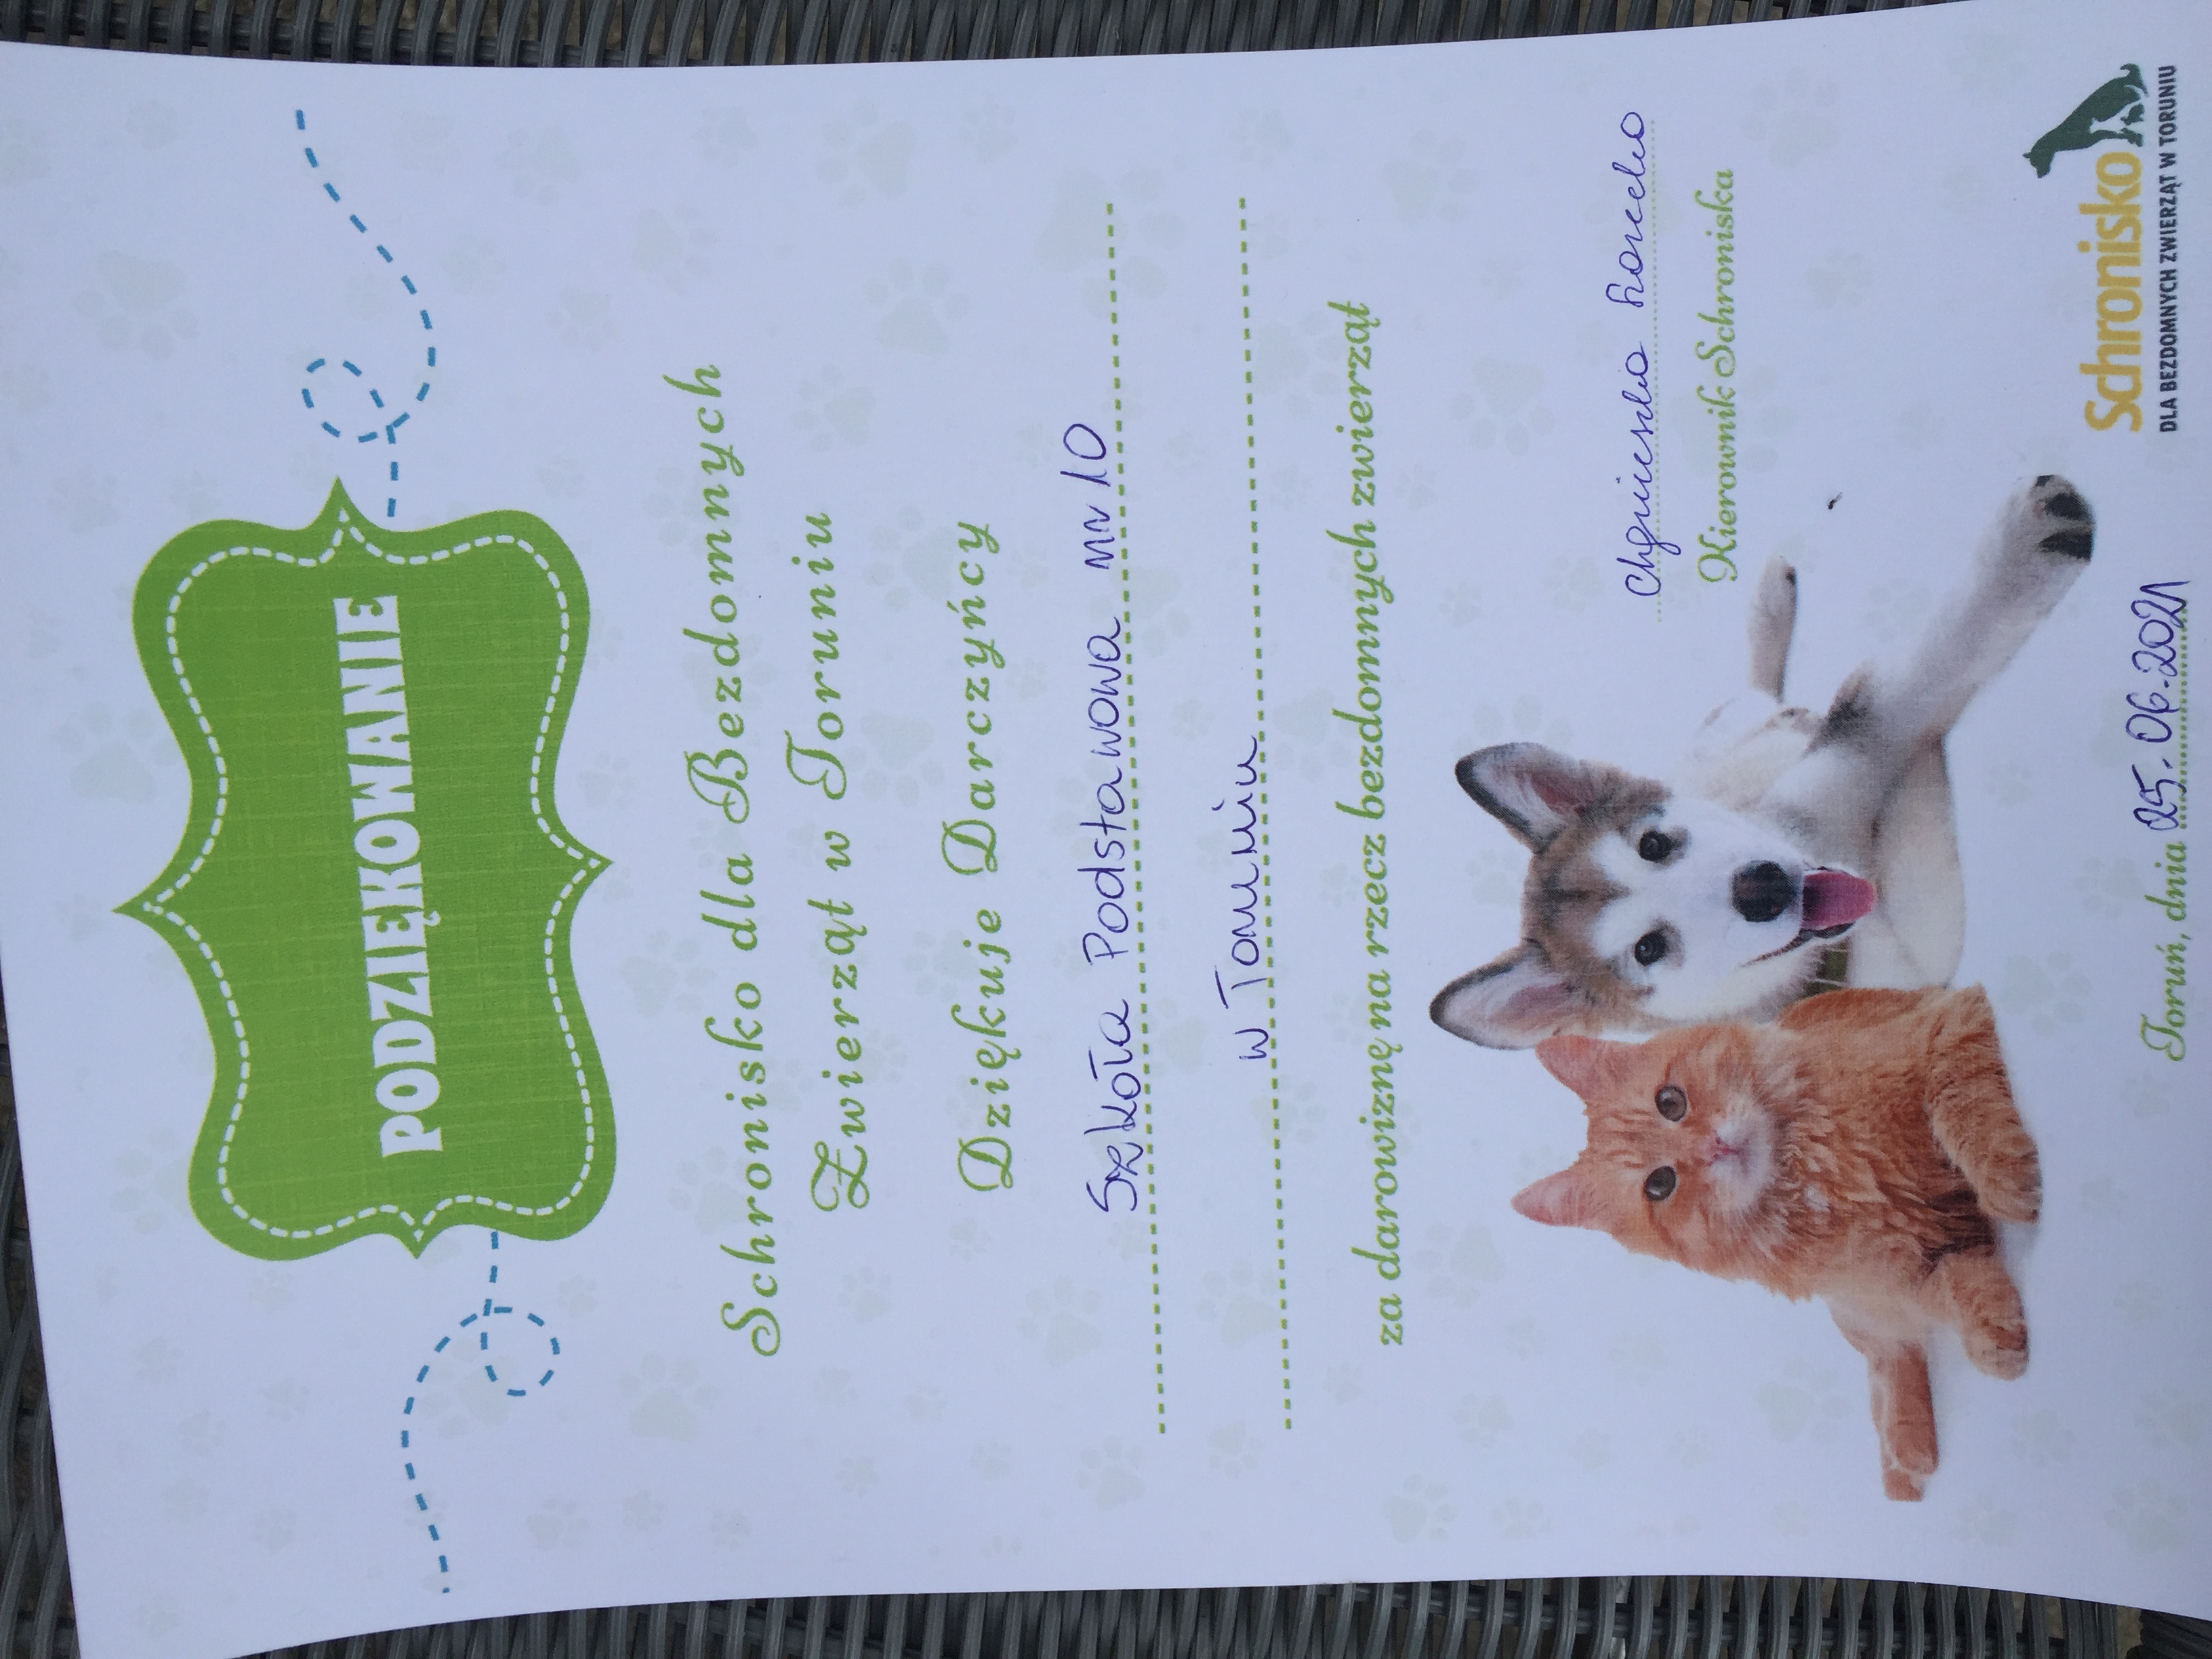 PODZIĘKOWANIE
Schronisko dla Bezdomnych
Zwierząt w Toruniu
Dziękuje Darczyńcy
Szkoła Podstawowa nr 10
w Toruniu
za darowiznę na rzecz bezdomnych zwierząt
Agnieszka
Kierownik Schroniska
Schronisko
DLA BEZDOMNYCH ZWIERZĄT W TORUNIU
Toruń, dnia 25.06.2021